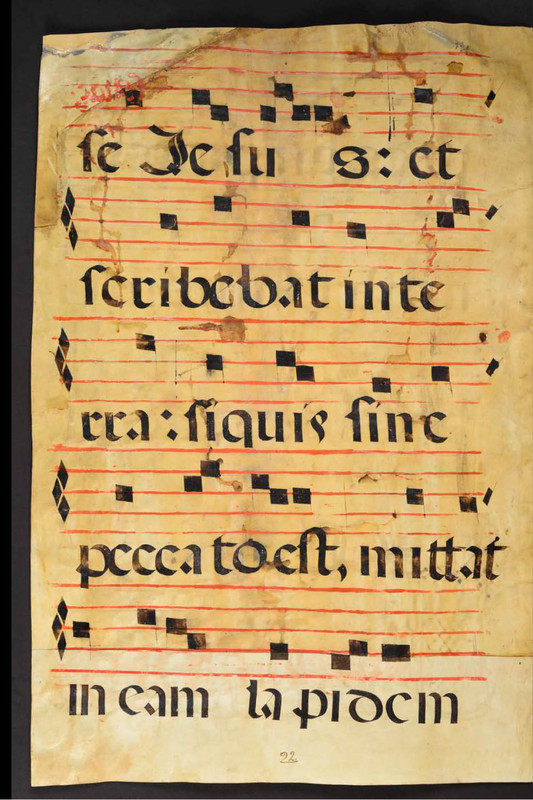 se Jesu s: et
scribebat in te
rra: siquis sine
pecca to est, mittat
in eam la pidem
22